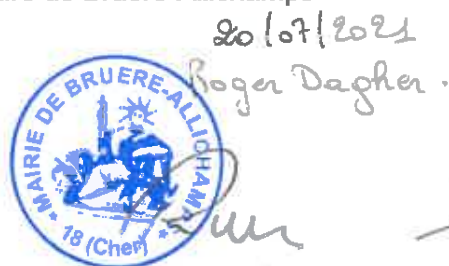 20/07/2021
Roger Dagher.
MAIRIE DE BRUERE-ALLICHAMPS
* 18 (Cher) *